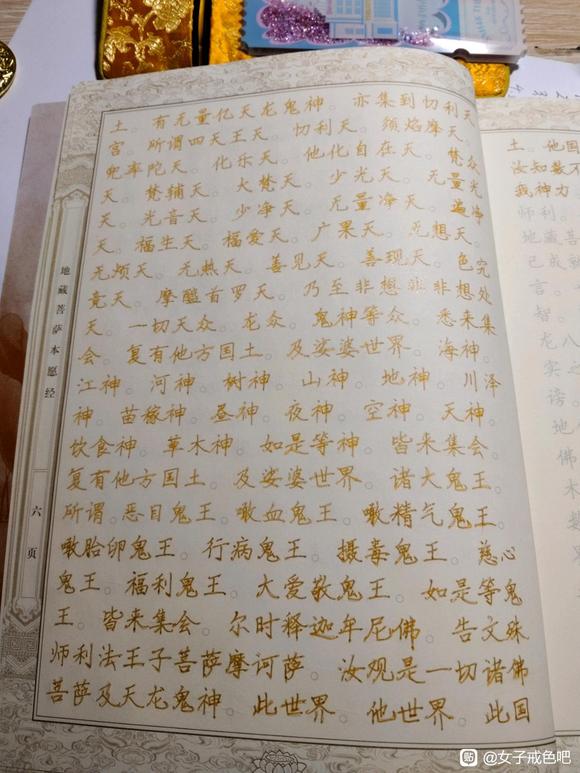 土。有无量亿天龙鬼神。亦集到忉利天
宫。所谓四天王天。忉利天。须焰摩天。
兜率陀天。化乐天。他化自在天。梵众
天。梵辅天。大梵天。少光天。无量光
天。光音天。少净天。无量净天。遍净
天。福生天。福爱天。广果天。无想天。
无烦天。无热天。善见天。善现天。色究
竟天。摩醯首罗天。乃至非想非非想处
天。一切天众。龙众。鬼神等众。悉来集
会。复有他方国土。及娑婆世界。海神。
江神。河神。树神。山神。地神。川泽
神。苗稼神。昼神。夜神。空神。天神。
饮食神。草木神。如是等神。皆来集会。
复有他方国土。及娑婆世界。诸大鬼王。
所谓。恶目鬼王。啖血鬼王。啖精气鬼王。
啖胎卵鬼王。行病鬼王。摄毒鬼王。慈心
鬼王。福利鬼王。大爱敬鬼王。如是等鬼
王。皆来集会。尔时释迦牟尼佛。告文殊
师利法王子菩萨摩诃萨。汝观是一切诸佛
菩萨及天龙鬼神。此世界。他世界。此国
地藏菩萨本愿经
六页
土。他国
汝知数不
我神力
师利。
地藏菩
已成就
言。
智。
龙八
实之
谤。
地
佛
木
贴 @女子戒色吧